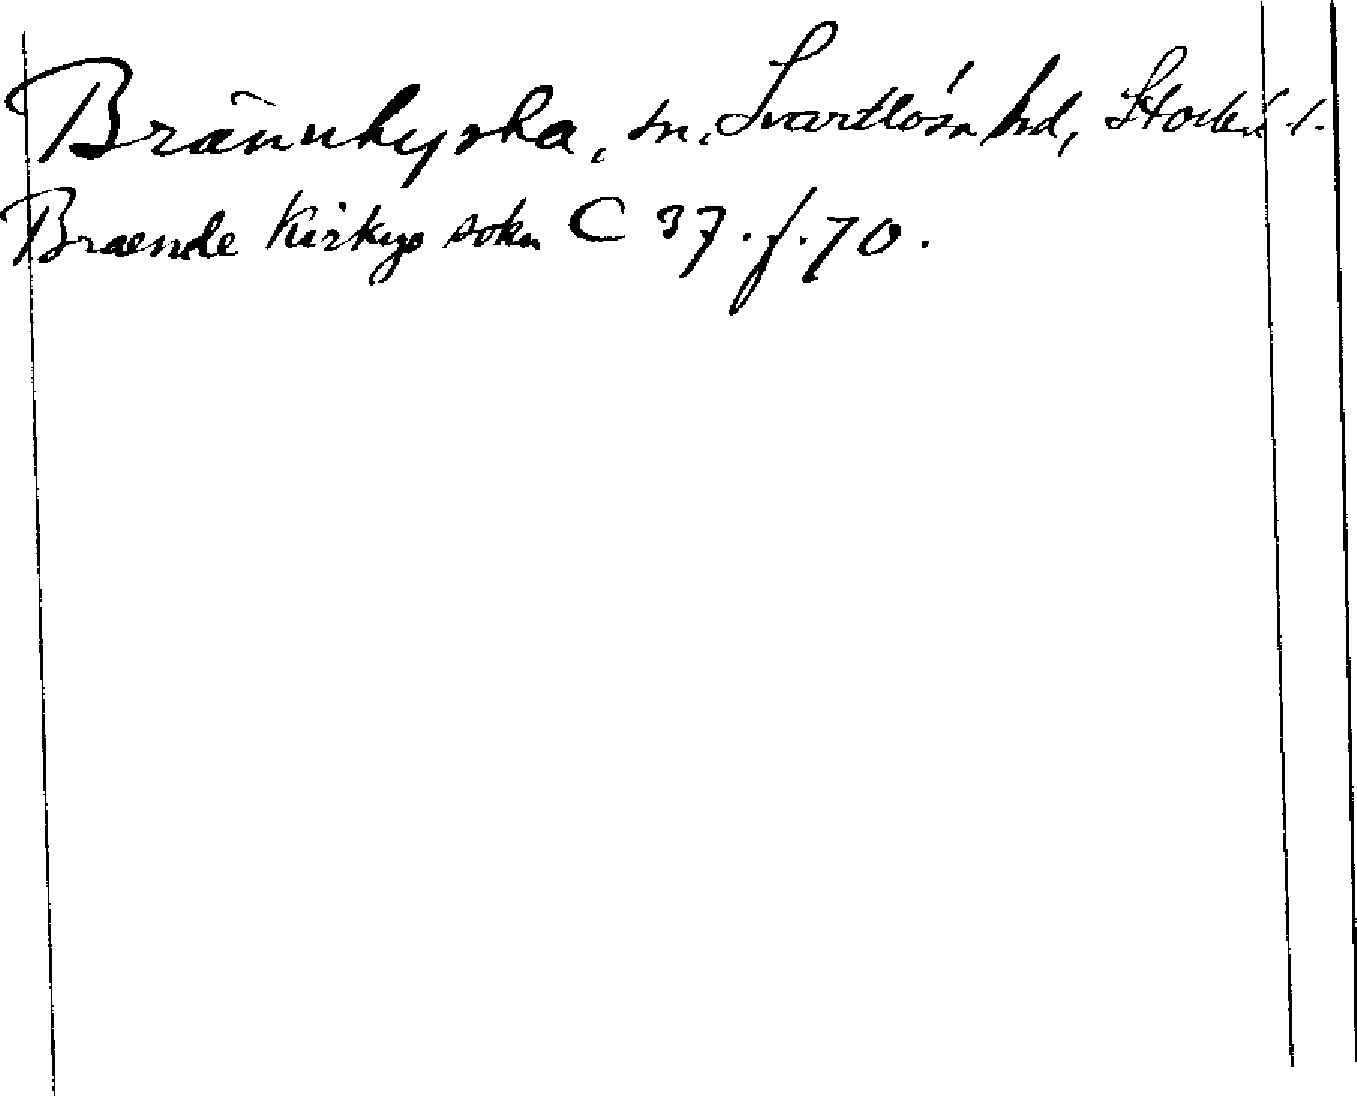 Brännkyrka, sn, Svartlösa hd, Stockh. l.
Braende Kirkyo sokn C 37. f. 70.